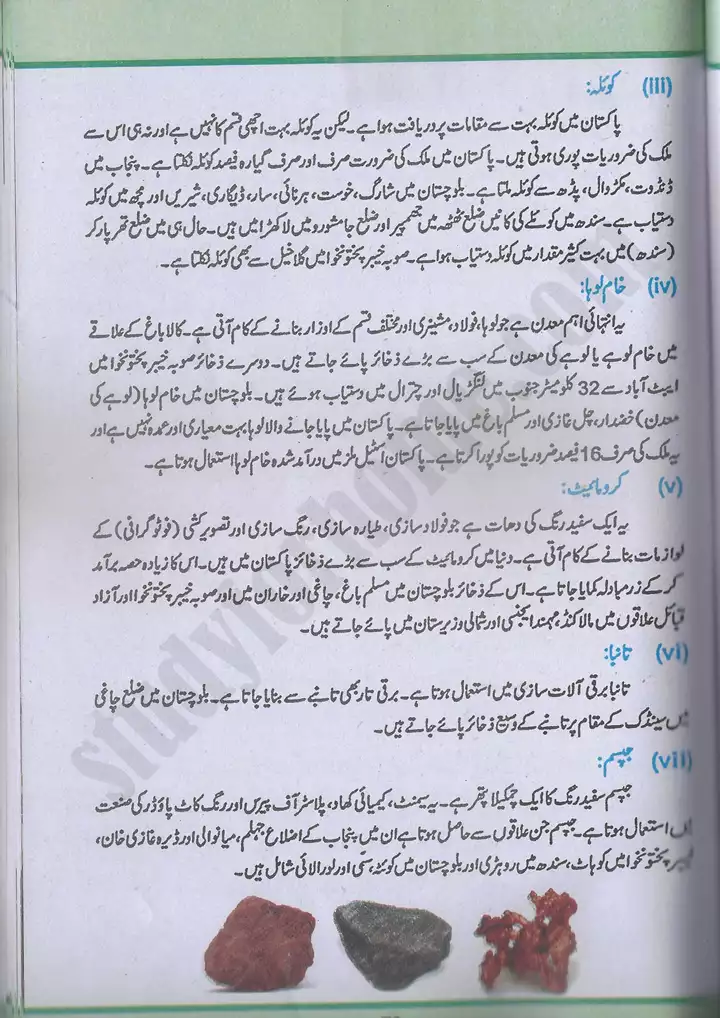 (iii) کوئلہ:
پاکستان میں کوئلہ بہت سے مقامات پر دریافت ہوا ہے۔ لیکن یہ کوئلہ بہت اچھی قسم کا نہیں ہے اور نہ ہی اس سے
ملک کی ضروریات پوری ہوتی ہیں۔ پاکستان میں ملک کی ضرورت صرف اور صرف گیارہ فیصد کوئلہ نکلتا ہے۔ پنجاب میں
ڈنڈوت، مکڑوال، پڈھ سے کوئلہ ملتا ہے۔ بلوچستان میں شارگ، خوست، ہرنائی، سار، ڈیگاری، شیریں اور مچھ میں کوئلہ
دستیاب ہے۔ سندھ میں کوئلے کی کانیں ضلع ٹھٹھہ میں جھمپیر اور ضلع جامشورو میں لاکھڑا میں ہیں۔ حال ہی میں ضلع تھرپارکر
(سندھ) میں بہت کثیر مقدار میں کوئلہ دستیاب ہوا ہے۔ صوبہ خیبر پختونخوا میں گلاخیل سے بھی کوئلہ نکلتا ہے۔
(iv) خام لوہا:
یہ انتہائی اہم معدن ہے جو لوہا، فولاد، مشینری اور مختلف قسم کے اوزار بنانے کے کام آتی ہے۔ کالا باغ کے علاقے
میں خام لوہے یا لوہے کی معدن کے سب سے بڑے ذخائر پائے جاتے ہیں۔ دوسرے ذخائر صوبہ خیبر پختونخوا میں
ایبٹ آباد سے 32 کلومیٹر جنوب میں لنگڑیال اور چترال میں دستیاب ہوئے ہیں۔ بلوچستان میں خام لوہا (لوہے کی
معدن) خضدار، چل غازی اور مسلم باغ میں پایا جاتا ہے۔ پاکستان میں پایا جانے والا لوہا بہت معیاری اور عمدہ نہیں ہے اور
یہ ملک کی صرف 16 فیصد ضروریات کو پورا کرتا ہے۔ پاکستان اسٹیل ملز میں درآمد شدہ خام لوہا استعمال ہوتا ہے۔
(v) کرومائیٹ:
یہ ایک سفید رنگ کی دھات ہے جو فولاد سازی، طیارہ سازی، رنگ سازی اور تصویر کشی (فوٹو گرافی) کے
لوازمات بنانے کے کام آتی ہے۔ دنیا میں کرومائیٹ کے سب سے بڑے ذخائر پاکستان میں ہیں۔ اس کا زیادہ حصہ برآمد
کر کے زرمبادلہ کمایا جاتا ہے۔ اس کے ذخائر بلوچستان میں مسلم باغ، چاغی اور خاران میں اور صوبہ خیبر پختونخوا اور آزاد
قبائل علاقوں میں مالاکنڈ، مہمند ایجنسی اور شمالی وزیرستان میں پائے جاتے ہیں۔
(vi) تانبا:
تانبا برقی آلات سازی میں استعمال ہوتا ہے۔ برقی تار بھی تانبے سے بنایا جاتا ہے۔ بلوچستان میں ضلع چاغی
میں سینڈک کے مقام پر تانبے کے وسیع ذخائر پائے جاتے ہیں۔
(vii) جپسم:
جپسم سفید رنگ کا ایک چمکیلا پتھر ہے۔ یہ سیمنٹ، کیمیائی کھاد، پلاسٹر آف پیرس اور رنگ کاٹ پاؤڈر کی صنعت
میں استعمال ہوتا ہے۔ جپسم جن علاقوں سے حاصل ہوتا ہے ان میں پنجاب کے اضلاع جہلم، میانوالی اور ڈیرہ غازی خان،
خیبر پختونخوا میں کوہاٹ، سندھ میں روہڑی اور بلوچستان میں کوئٹہ، سبی اور لورالائی شامل ہیں۔